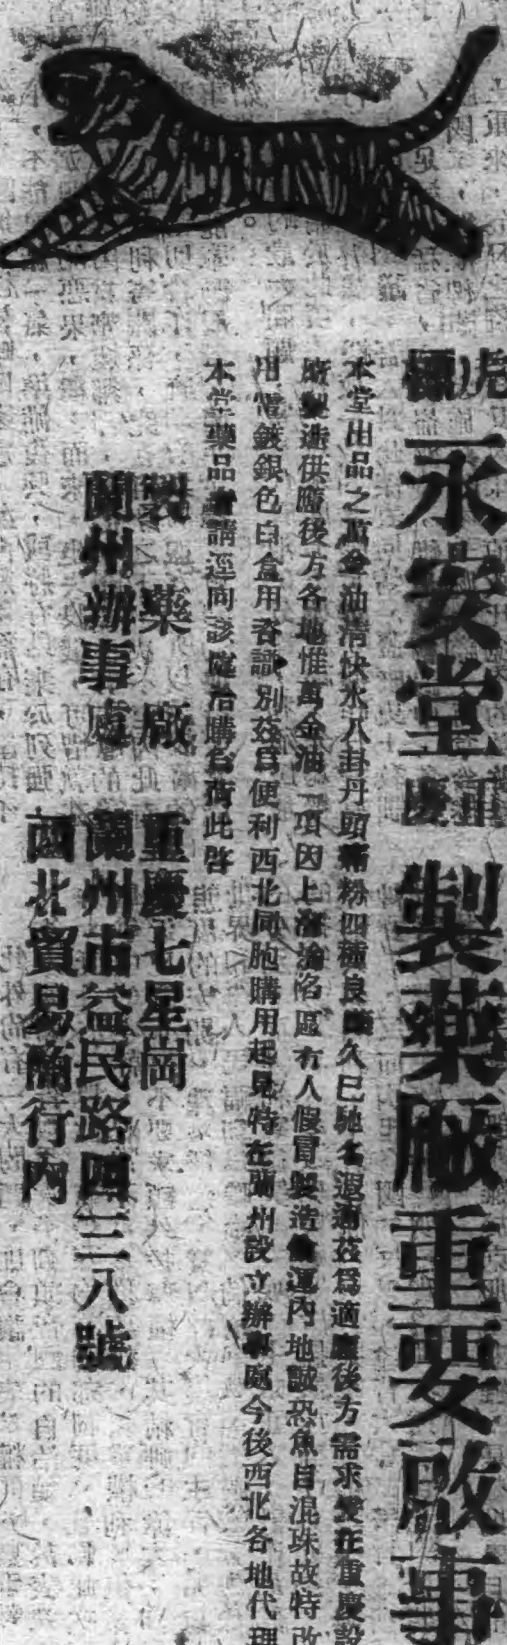 虎標永安堂重慶製藥厰重要啟事
本堂出品之萬金油清快水八卦丹頭痛粉四種良藥久已馳名遐邇茲爲適應後方需求爰在重慶設
厰製造供應後方各地惟萬金油一項因上海淪陷區有人假冒製造偷運內地誠恐魚目混珠故特改
用電鍍銀色白盒用者識別茲爲便利西北同胞購用起見特在蘭州設立辦事處今後西北各地代理
本堂藥品者請逕向該處洽購台荷此啓
製藥厰 重慶七星崗
蘭州辦事處 蘭州市益民路四三八號
西北貿易商行內